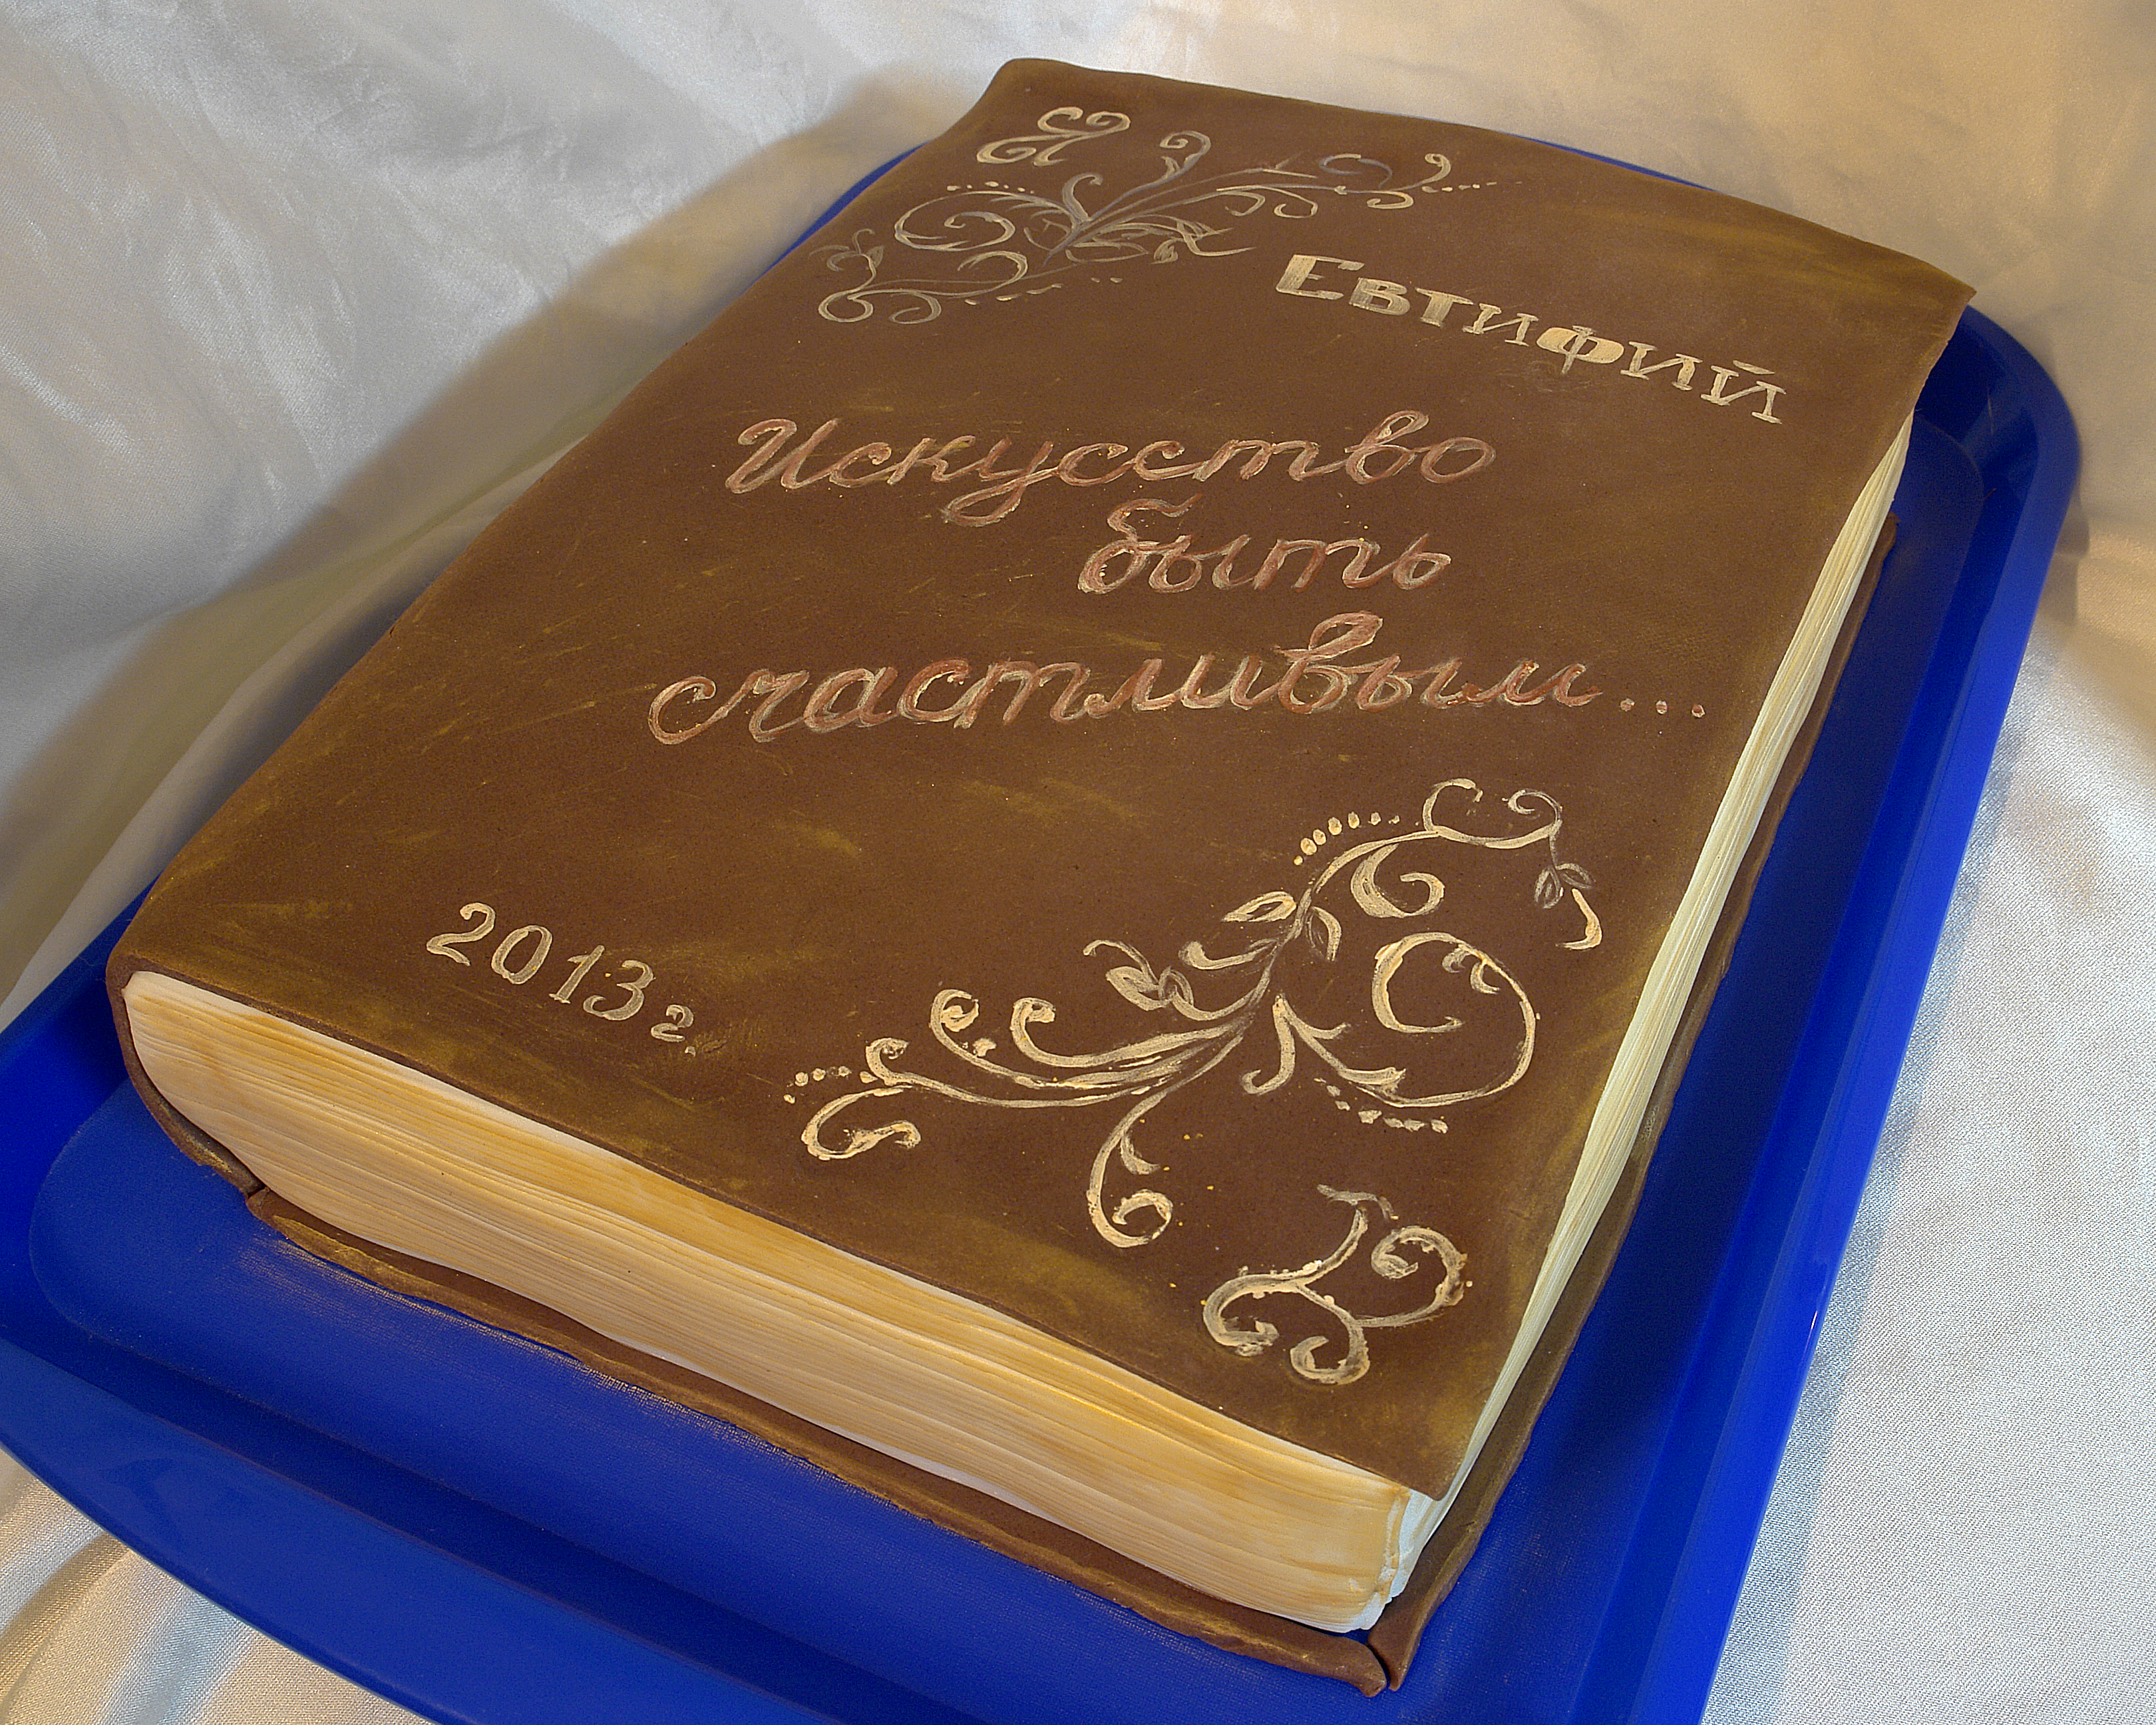 Евтифий
Искусство
быть
счастливым...
2013г.